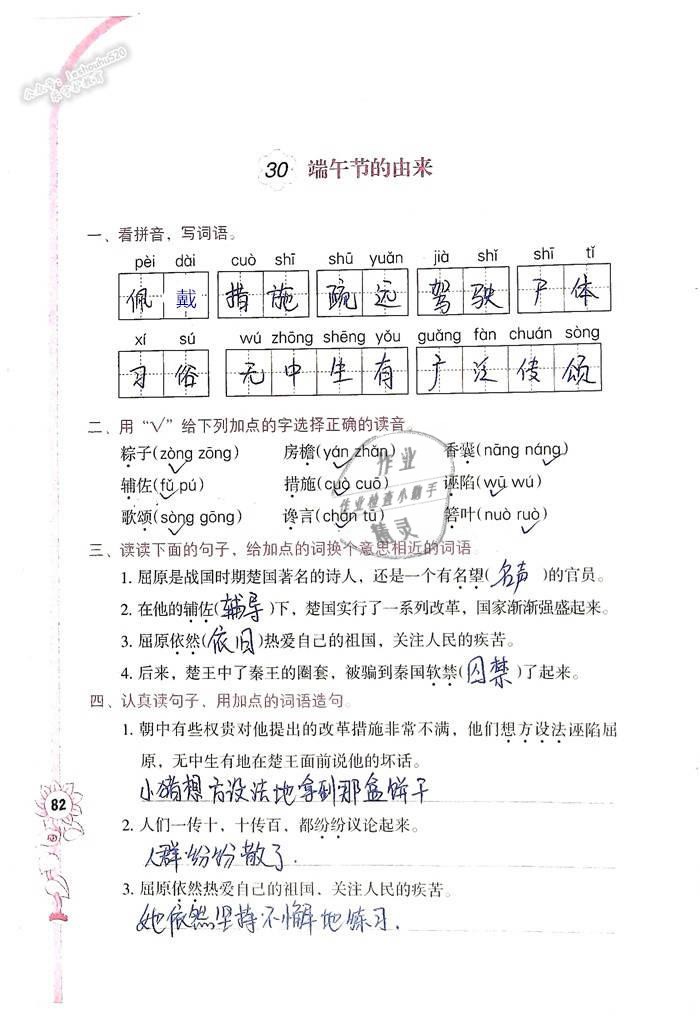 公众号: leshouhu520
乐守护教育
30 端午节的由来
一、看拼音，写词语。
pèi dài cuò shī shū yuǎn jià shǐ shī tǐ
佩戴 措施 疏远 驾驶 尸体
xí sú wú zhōng shēng yǒu guǎng fàn chuán sòng
习俗 无中生有 广泛传颂
二、用“√”给下列加点的字选择正确的读音
粽子(zòng zōng) 房檐(yán zhān) 香囊(nāng náng)
辅佐(fǔ pú) 措施(cuò cuō) 诬陷(wū wú)
歌颂(sòng gōng) 谗言(chán tū) 箬叶(nuò ruò)
三、读读下面的句子，给加点的词换个意思相近的词语
1. 屈原是战国时期楚国著名的诗人，还是一个有名望(名声)的官员。
2. 在他的辅佐(辅导)下，楚国实行了一系列改革，国家渐渐强盛起来。
3. 屈原依然(依旧)热爱自己的祖国，关注人民的疾苦。
4. 后来，楚王中了秦王的圈套，被骗到秦国软禁(囚禁)了起来。
四、认真读句子，用加点的词语造句。
1. 朝中有些权贵对他提出的改革措施非常不满，他们想方设法诬陷屈
原，无中生有地在楚王面前说他的坏话。
小猪想方设法地拿到那盒饼干
2. 人们一传十，十传百，都纷纷议论起来。
人群纷纷散了.
3. 屈原依然热爱自己的祖国，关注人民的疾苦。
她依然坚持不懈地练习.
82
作业
作业检查小助手
精灵